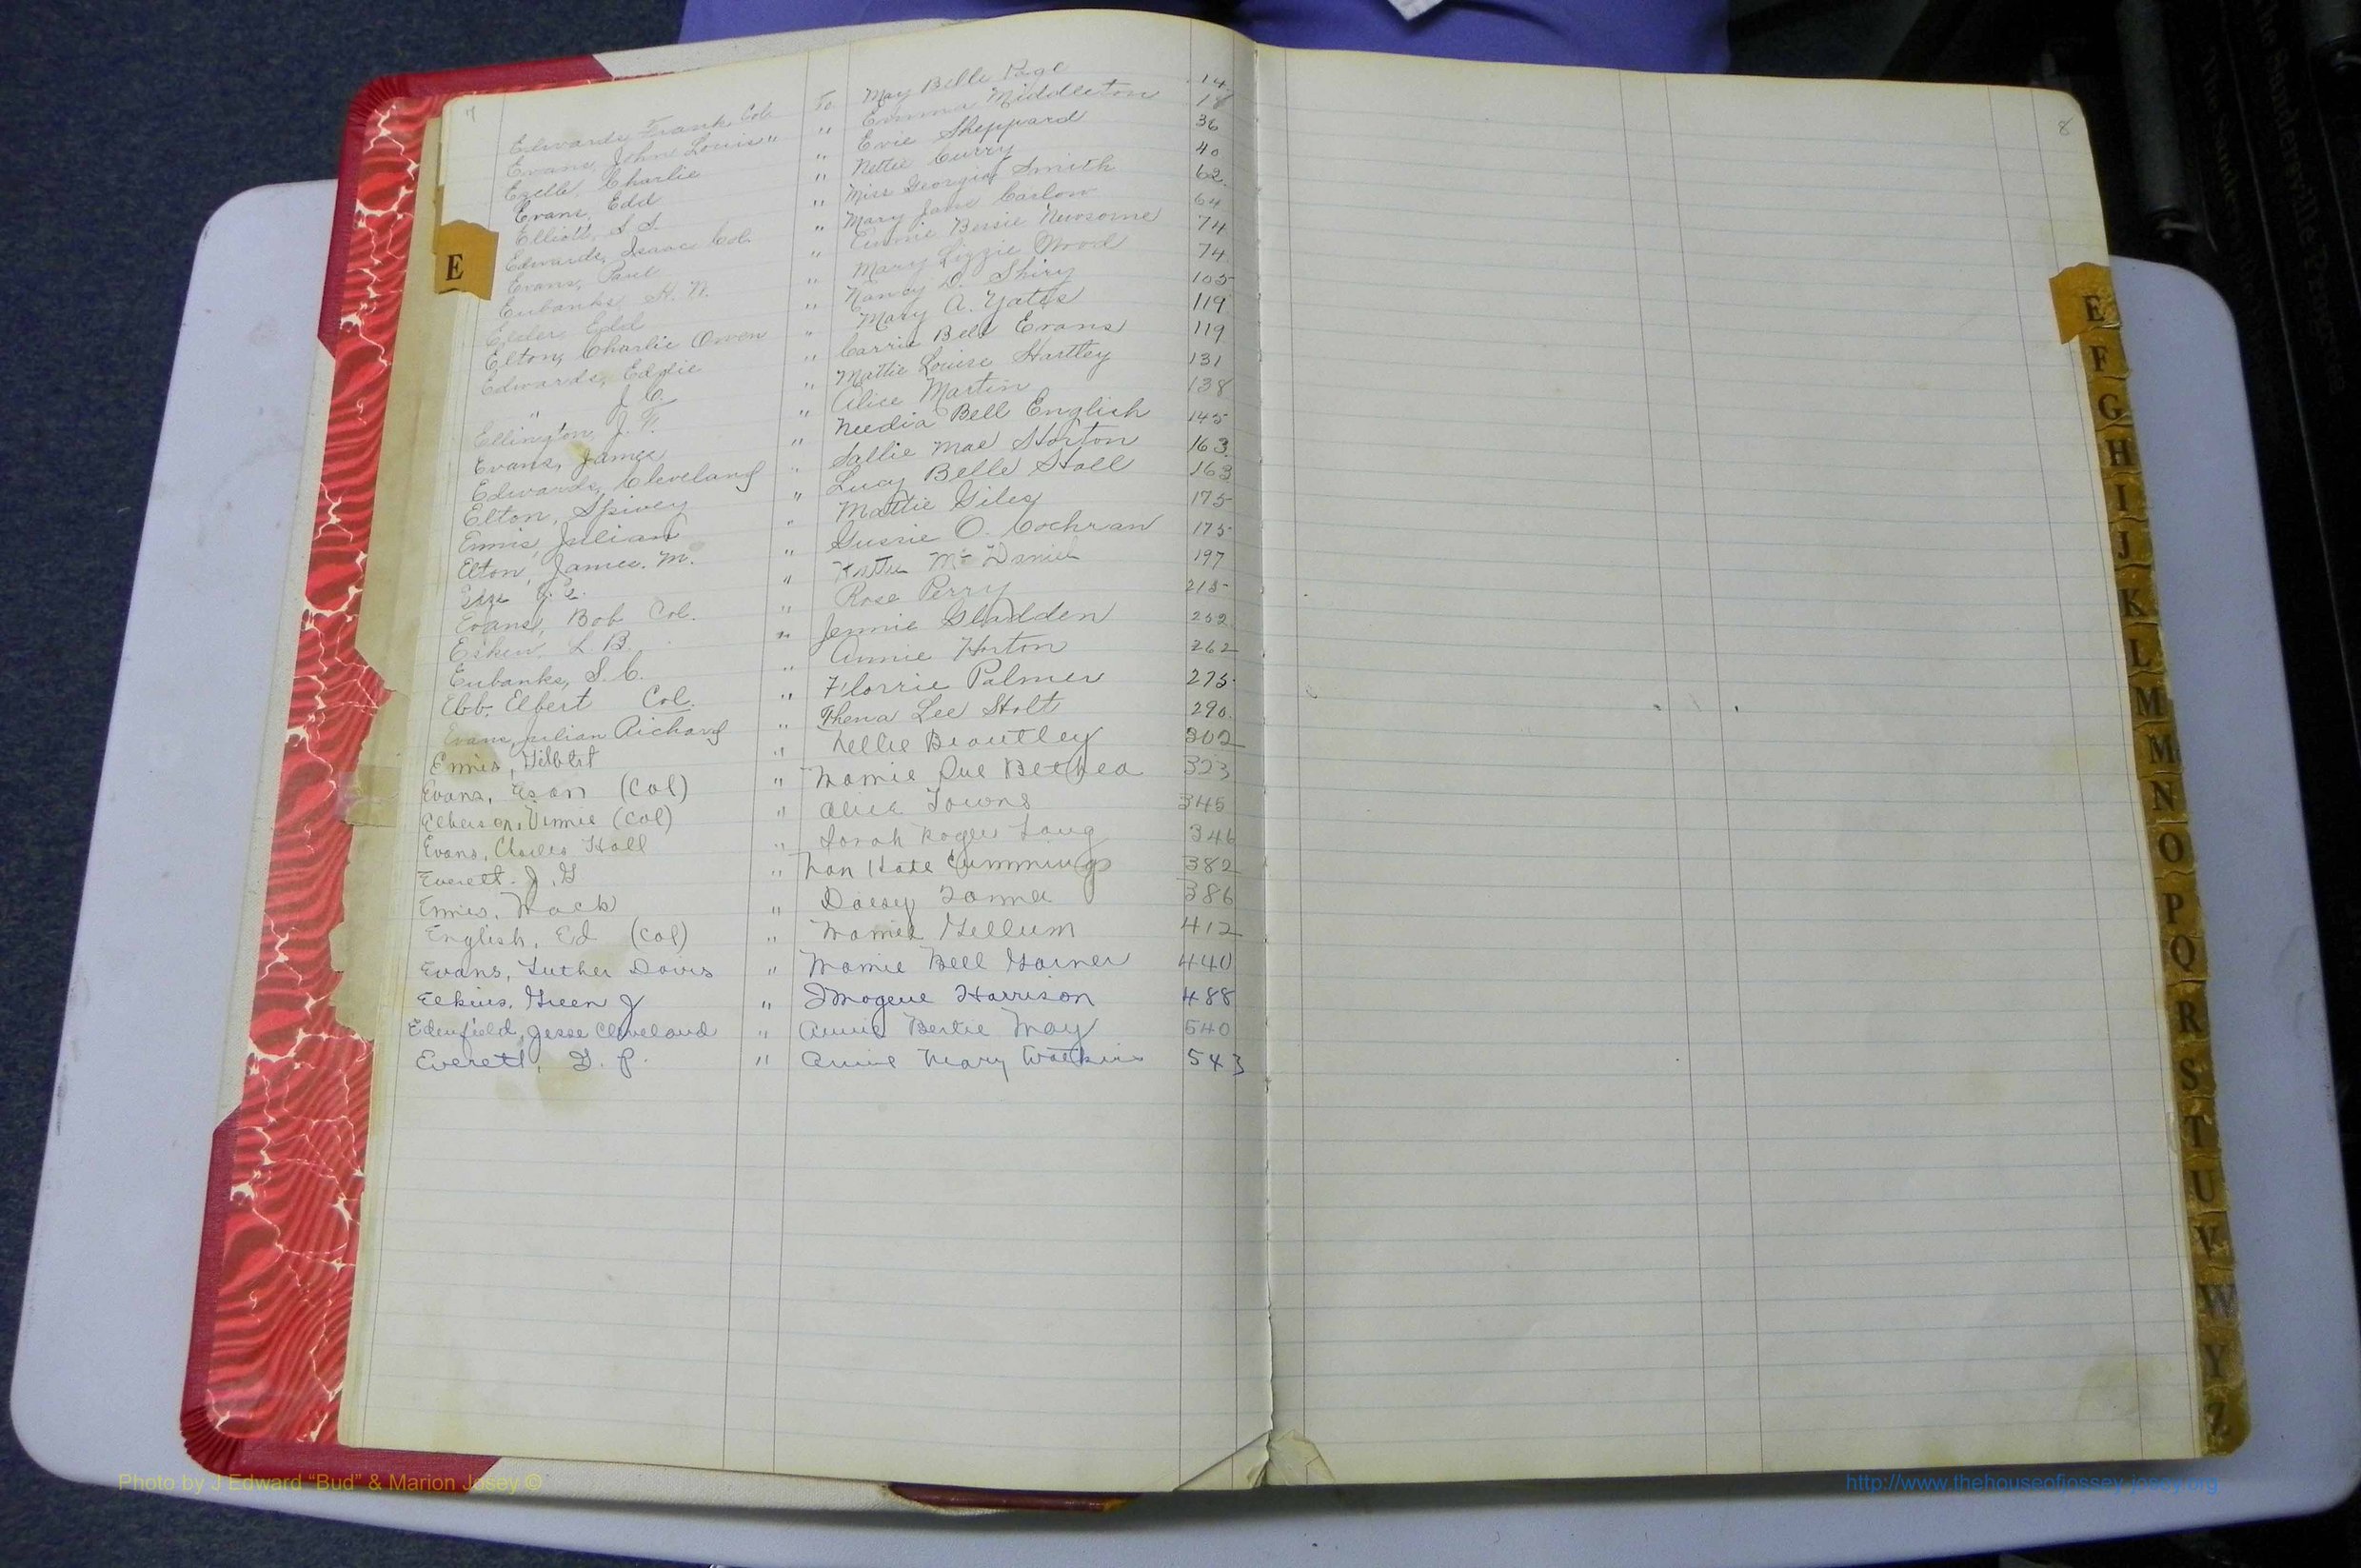 7
Edwards, Frank Col. To May Belle Page 14
Evans, John Louis " " Emma Middleton 18
Ezelle, Charlie " Evie Sheppard 36
Evans, Edd " Nettie Curry 40
Elliott, S. S. " Miss Georgia Smith 62
Edwards, Isaac Col. " Mary Jane Carlow 64
Evans, Paul " Annie Bessie Newsome 74
Eubanks, H. N. " Mary Lizzie Wood 74
Edd " Nancy D. Shiry 105
Elton, Charlie Owen " Mary A. Yates 119
Edwards, Eddie " Carrie Bell Evans 119
" J. C. " Mattie Louise Hartley 131
Ellington, J. F. " Alice Martin 138
Evans, James " Needia Bell English 145
Edwards, Cleveland " Sallie Mae Horton 163
Elton, Spivey " Lucy Belle Hall 163
Ennis, Julian " Mattie Giles 175
Elton, James M. " Gussie O. Cochran 175
" McDaniel 197
Evans, Bob Col. " Rose Perry 215
L. B. " Jennie Gladden 252
Eubanks, S. C. " Annie Horton 262
Ebb, Elbert Col. " Florrie Palmer 275
Evans, Julian Richard " Thena Lee Holt 290
Ennis, Hilbert " Nellie Brantley 302
Evans, (Col) " Mamie Sue Bethea 323
Vinnie (Col) " Alice Towns 345
Evans, Charles Hall " Sarah Rogers Long 346
Everett, J. G " Nan Kate Cummings 382
Ennis, Mack " Daisy Tanner 386
English, Ed (Col) " Mamie Gellum 412
Evans, Luther Davis " Mamie Bell Garner 440
Elkins, Green J " Imogene Harrison 488
Edenfield, Jesse Cleveland " Annie Bertie May 540
Everett, G. P. " Annie Mary Watkins 543
8
E
E
F
G
H
I
J
K
L
M
M
N
O
P
Q
R
S
T
U
V
W
Y
Z
Photo by J Edward “Bud” & Marion Josey ©
http://www.thehouseofjossey-josey.org